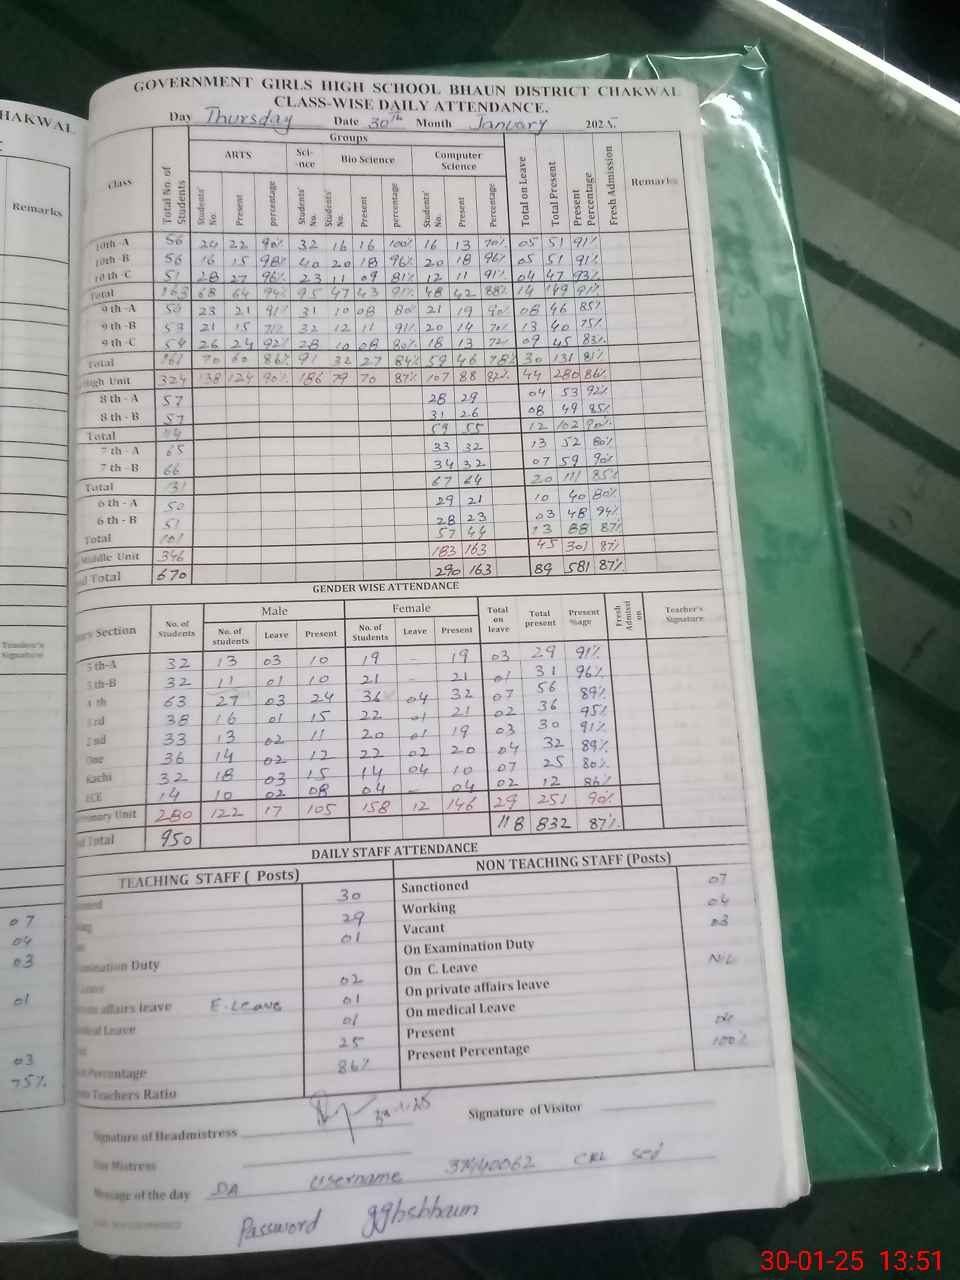 HAKWAL
Remarks
Teacher's
Signature
07
04
03
01
03
75%
GOVERNMENT GIRLS HIGH SCHOOL BHAUN DISTRICT CHAKWAL
CLASS-WISE DAILY ATTENDANCE.
Day Thursday Date 30th Month January 2025.
Groups
Class Total No. of Students ARTS Sci-nce Bio Science Computer Science Total on Leave Total Present Present Percentage Fresh Admission Remarks
Students' No. Present percentage Students' No. Students' No. Present percentage Students' No. Present Percentage
10th -A 56 24 22 90% 32 16 16 100% 16 13 70% 05 51 91%
10th -B 56 16 15 98% 40 20 18 96% 20 18 96% 05 51 91%
10th -C 51 28 27 96% 23 11 09 81% 12 11 91% 04 47 93%
Total 163 68 64 94% 95 47 43 91% 48 42 88% 14 149 91%
9th -A 50 23 21 91% 31 10 08 80% 21 19 90% 08 46 85%
9th -B 53 21 15 71% 32 12 11 91% 20 14 70% 13 40 75%
9th -C 54 26 24 92% 28 10 08 80% 18 13 72 09 45 83%
Total 161 70 60 86% 91 32 27 84% 59 46 78% 30 131 81%
High Unit 324 138 124 90% 186 79 70 87% 107 88 82% 44 280 86%
8th - A 57 28 29 04 53 92%
8th - B 57 31 26 08 49 85%
Total 59 55 12 102 90%
7th - A 65 33 32 13 52 80%
7th - B 66 34 32 07 59 90%
Total 131 67 64 20 111 85%
6th - A 50 29 21 10 40 80%
6th - B 51 28 23 03 48 94%
Total 101 57 44 13 88 87%
Middle Unit 346 183 163 45 301 87%
Total 670 290 163 89 581 87%
GENDER WISE ATTENDANCE
Section No. of Students Male Female Total on leave Total present Present %age Fresh Admission Teacher's Signature
No. of students Leave Present No. of Students Leave Present
5th-A 32 13 03 10 19 - 19 03 29 91%
5th-B 32 11 01 10 21 - 21 01 31 96%
4th 63 27 03 24 36 04 32 07 56 89%
3rd 38 16 01 15 22 01 21 02 36 95%
2nd 33 13 02 11 20 01 19 03 30 91%
One 36 14 02 12 22 02 20 04 32 89%
Kachi 32 18 03 15 14 04 10 07 25 80%
ECE 14 10 02 08 04 - 04 02 12 86%
Primary Unit 280 122 17 105 158 12 146 29 251 90%
Total 950 118 832 87%
DAILY STAFF ATTENDANCE
TEACHING STAFF ( Posts) NON TEACHING STAFF (Posts)
30 Sanctioned 07
29 Working 04
01 Vacant 03
Duty On Examination Duty
02 On C. Leave Nil
affairs leave E. Leave 01 On private affairs leave
Leave 01 On medical Leave
25 Present 04
Percentage 86% Present Percentage 100%
Teachers Ratio
30-1-25
Signature of Headmistress Signature of Visitor
Mistress
Message of the day DA Username 37440062 CRL SED
Password gghshbaun
30-01-25 13:51